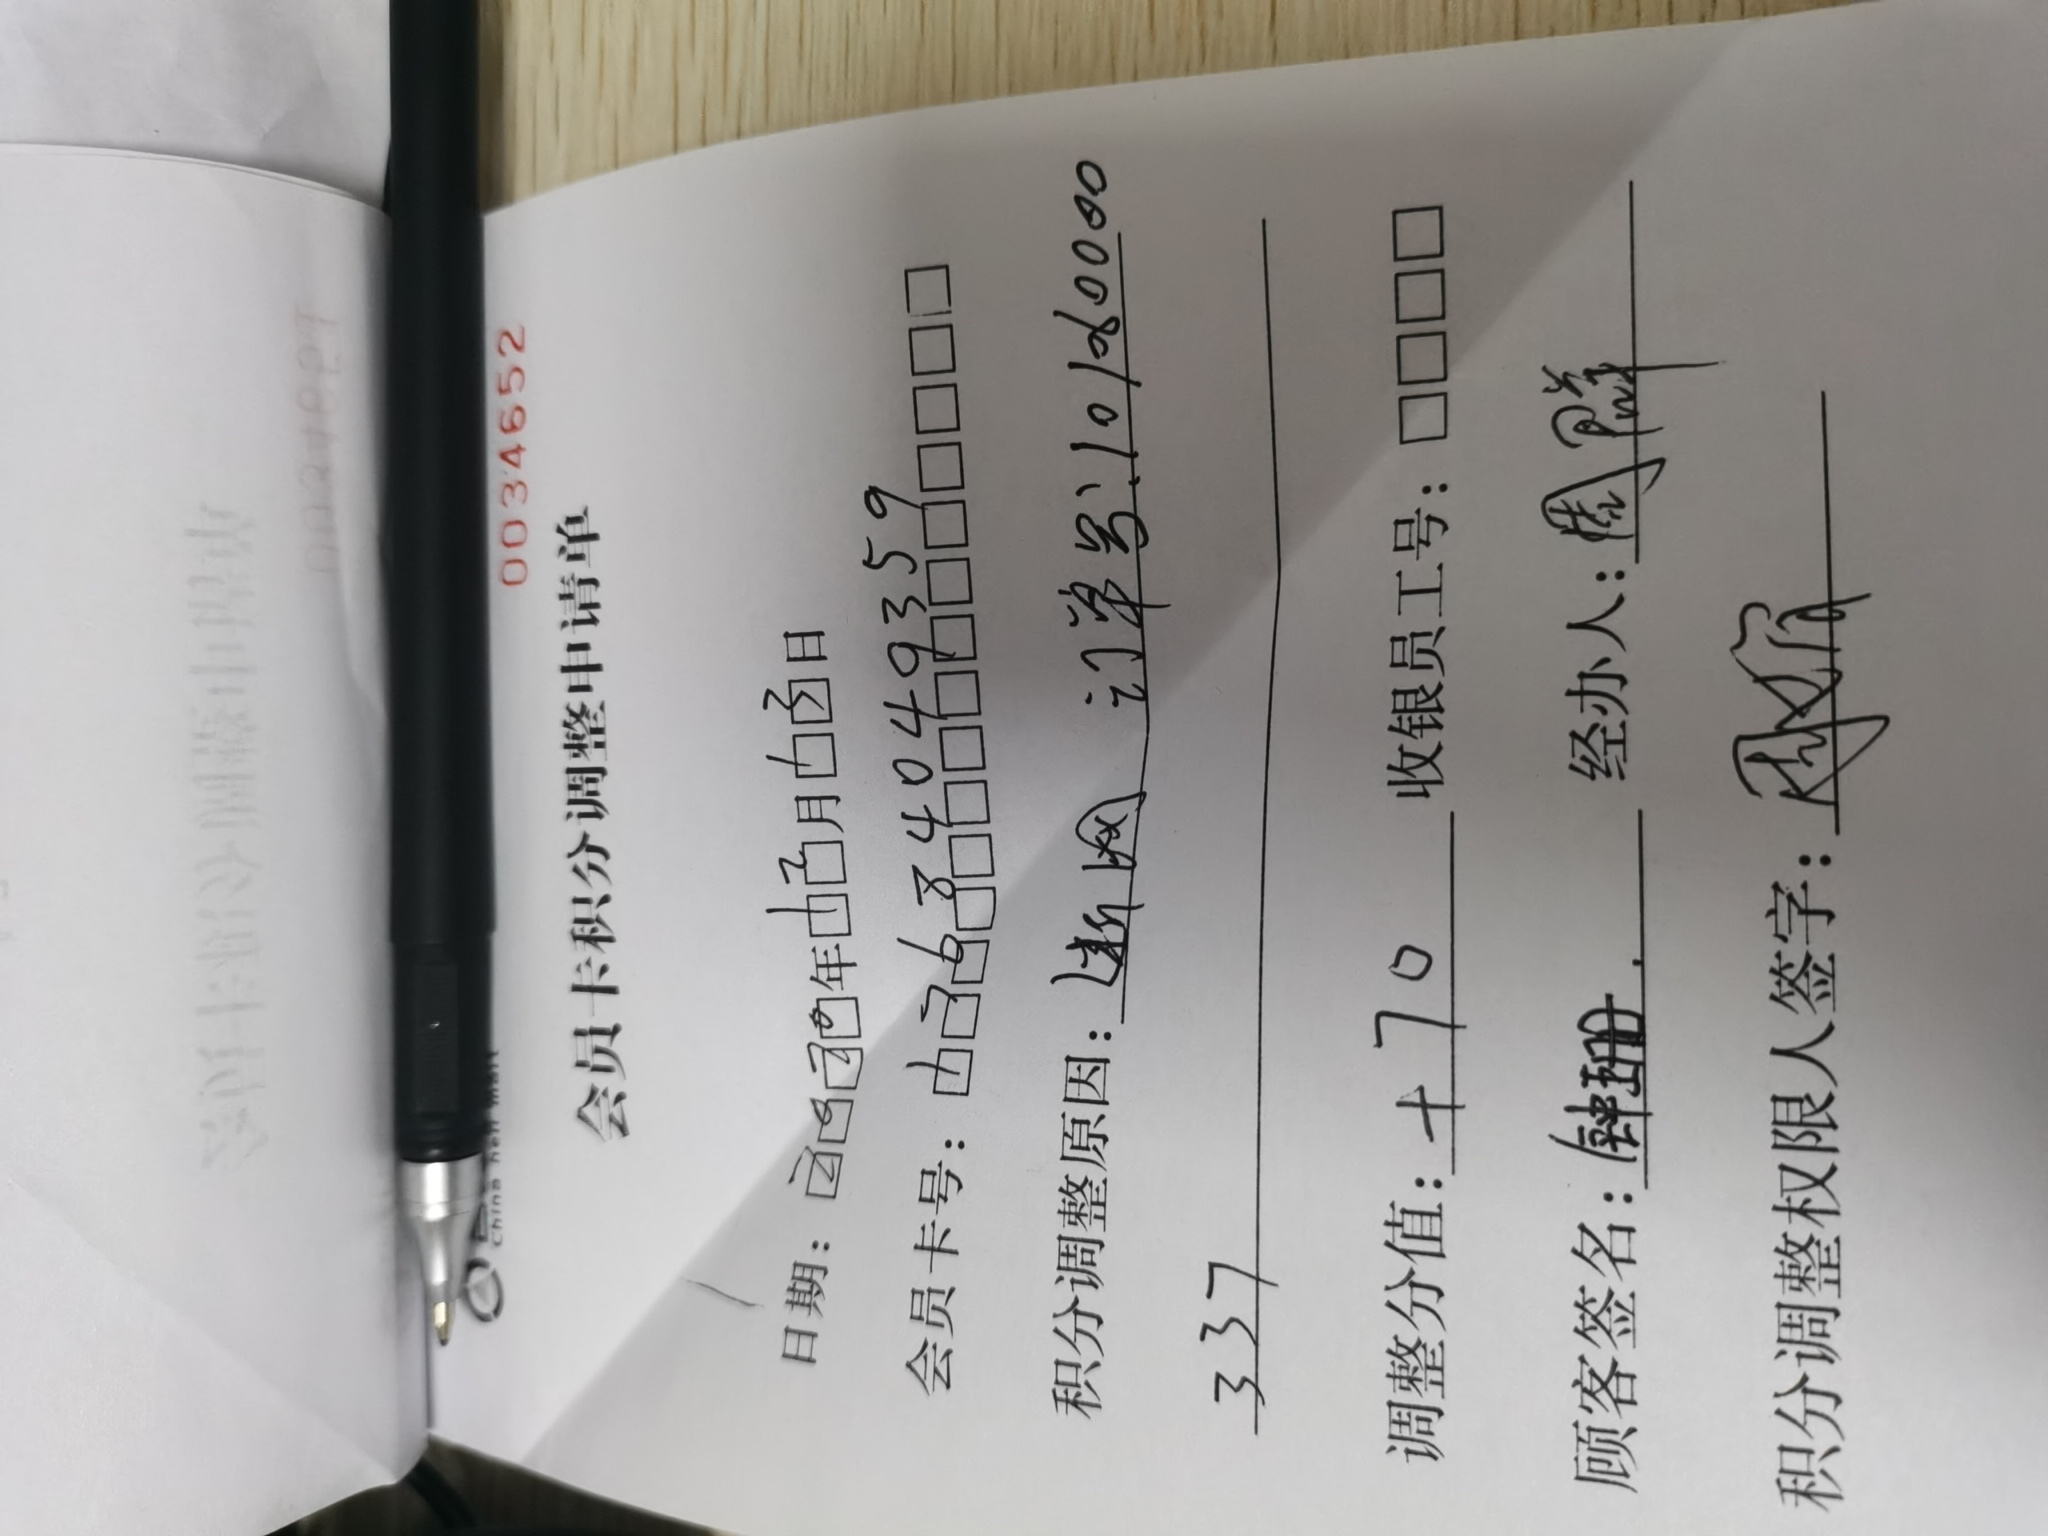 0034652
会员卡积分调整申请单
日期：2020年12月13日
会员卡号：13634049359
积分调整原因：断网 订单号:10180000
337
调整分值：+70 收银员工号：
顾客签名：钟珊 经办人：周群
积分调整权限人签字：